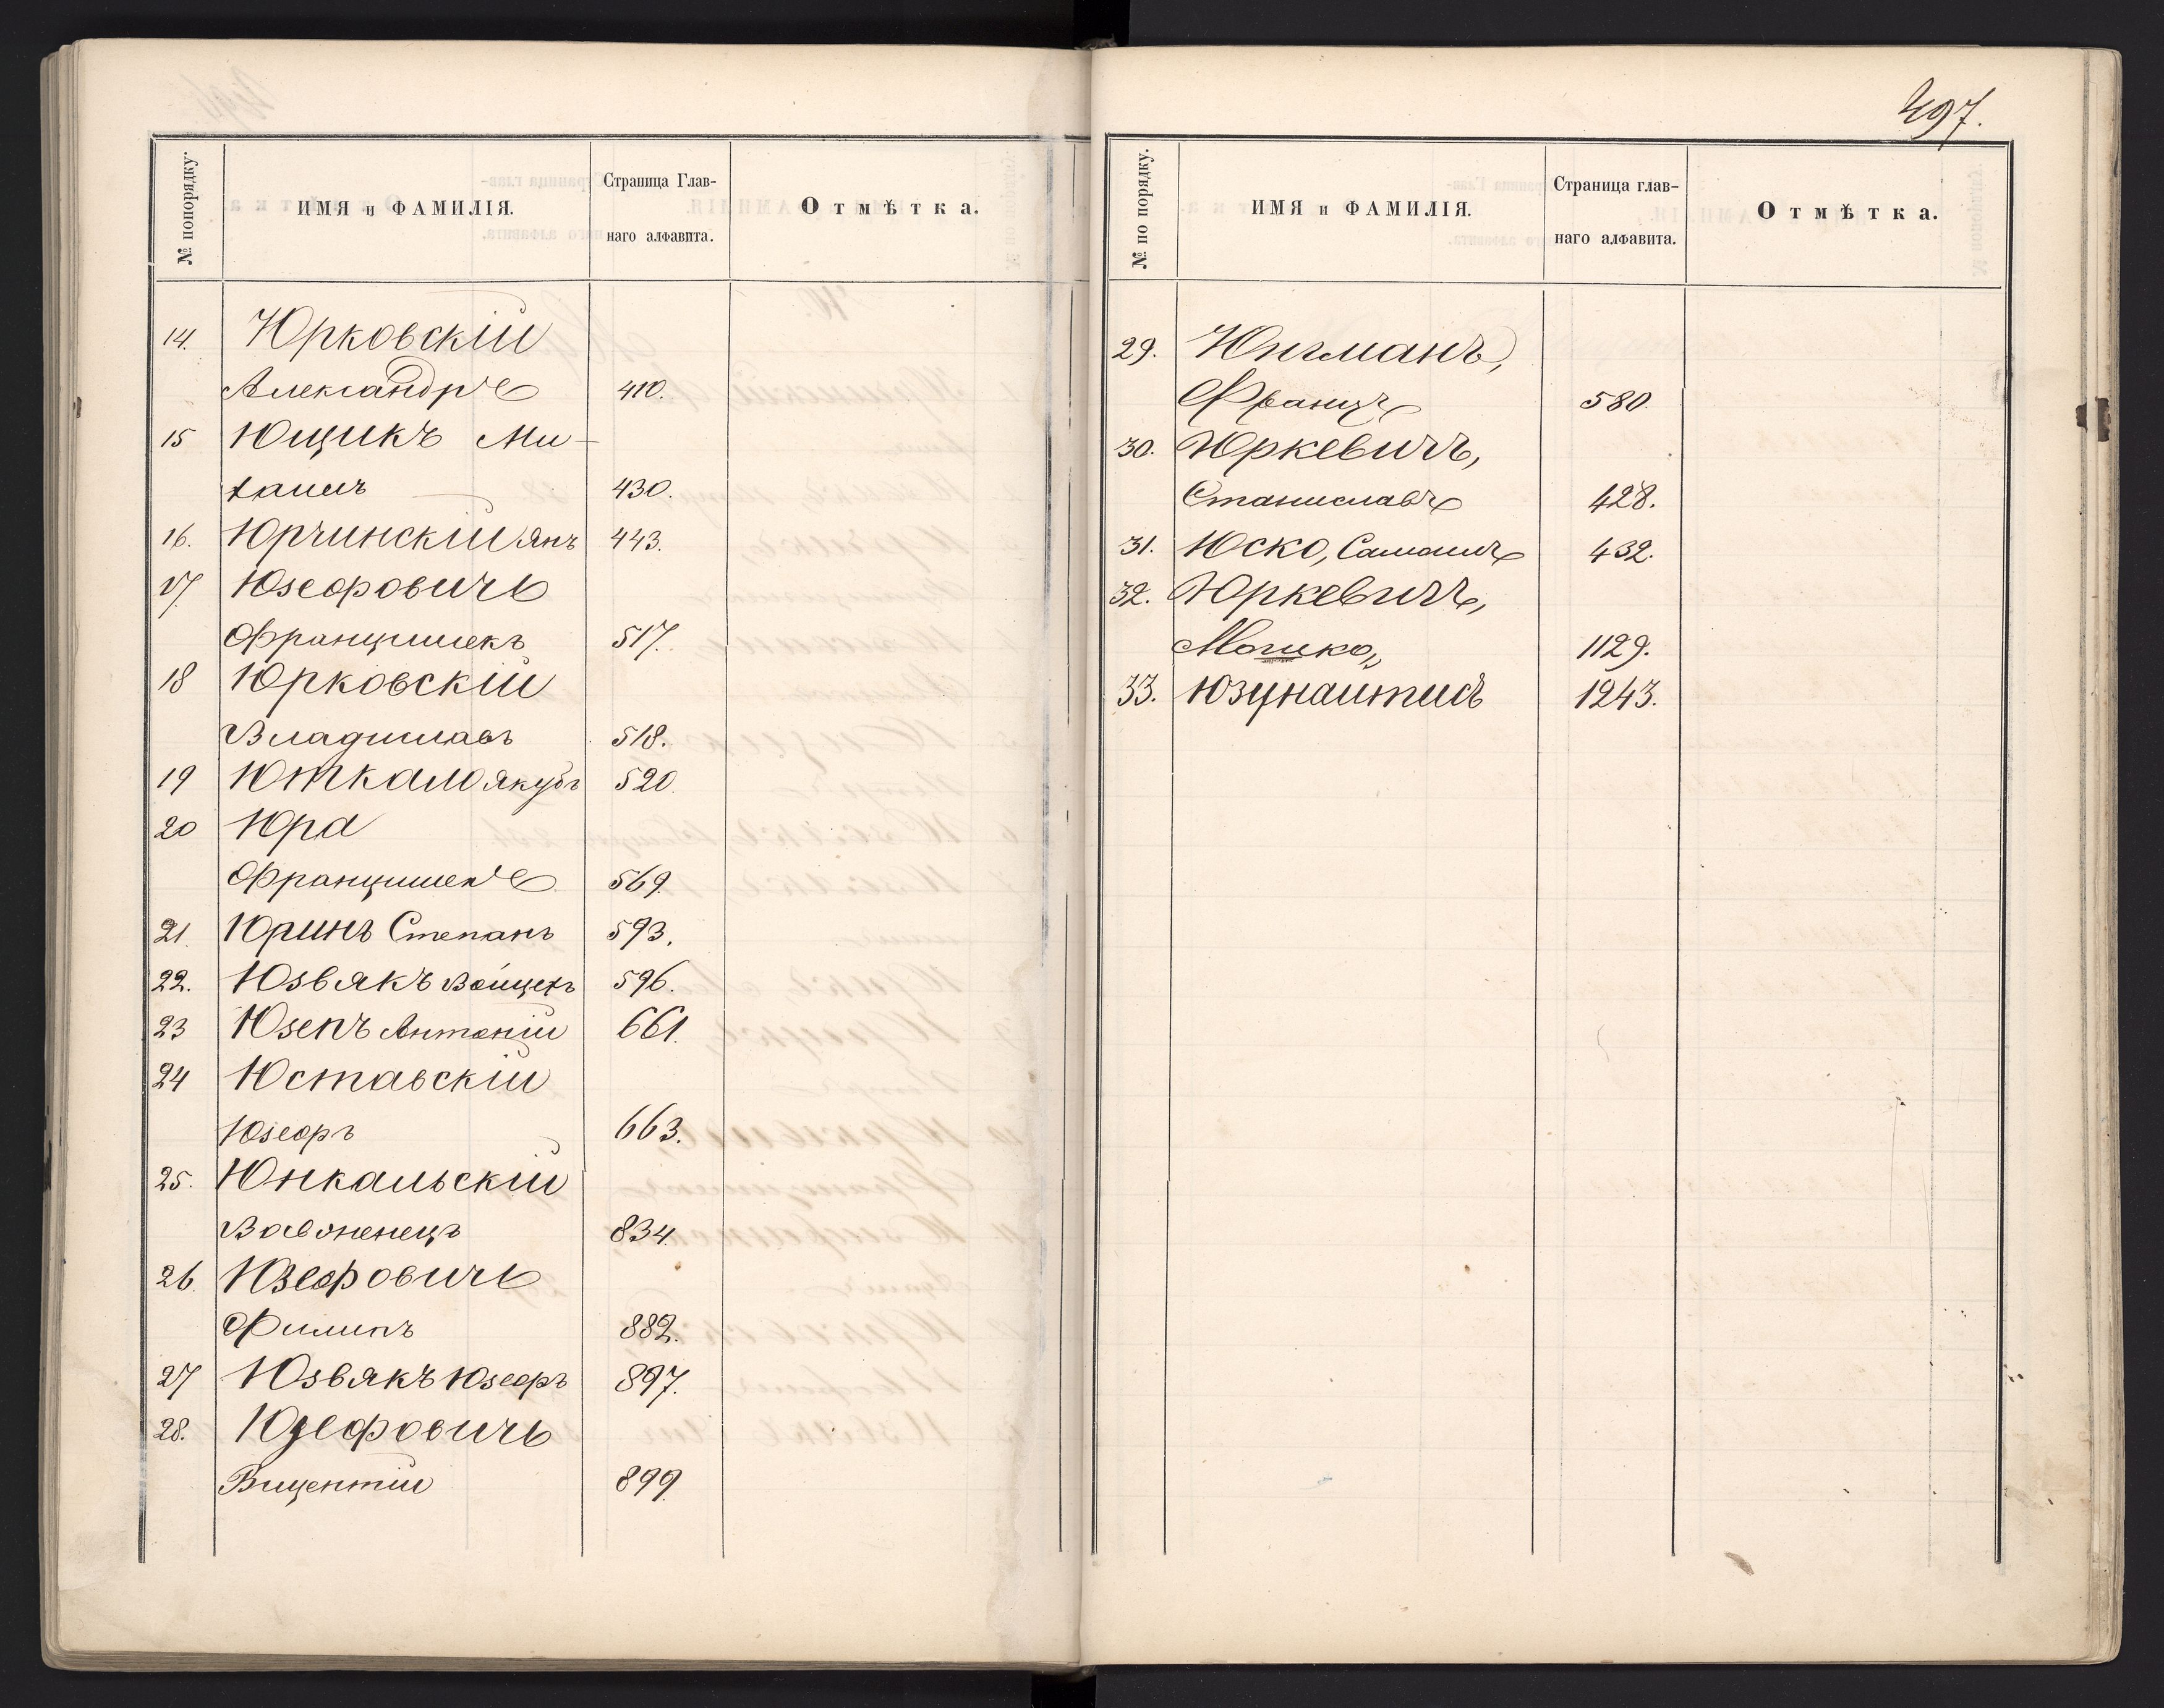 № попорядку.
ИМЯ и ФАМИЛІЯ.
Страница Глав-
наго алфавита.
Отмѣтка.
14. Юрковскій
Александръ 410.
15 Ющикъ Ми-
халъ 430.
16. Юрчинскій Янъ 443.
17. Юзефовичъ
Францишекъ 517.
18 Юрковскій
Владиславъ 518.
19 Юткало Якубъ 520.
20 Юра
Францишекъ 569.
21. Юринъ Степанъ 593.
22. Юзвякъ Войцехъ 596.
23 Юзепъ Антоній 661.
24 Юставскій
Юзефъ 663.
25. Юнкальскій
834.
26. Юзефовичъ
Филипъ 882.
27 Юзвякъ Юзефъ 897.
28. Юзефовичъ
Вицентій 899.
497.
№ по порядку.
ИМЯ и ФАМИЛІЯ.
Страница глав-
наго алфавита.
Отмѣтка.
29. Юнгманъ,
Францъ 580.
30. Юркевичъ,
Станиславъ 428.
31. Юско, 432.
32. Юркевичъ,
Мошко, 1129.
33. Юзунаитисъ 1243.